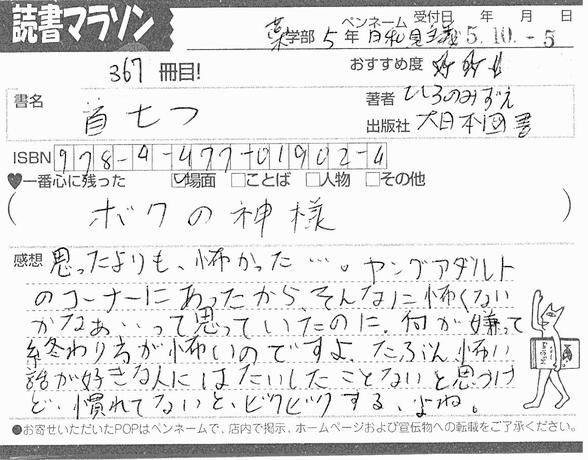 読書マラソン
ペンネーム 受付日 年 月 日
薬学部 5年 日和見主義 5.10.-5
367冊目! おすすめ度
書名 首七つ
著者 ひろのみずえ
出版社 大日本図書
ISBN 978-4-477-01902-4
♥一番心に残った ☑場面 □ことば □人物 □その他
(ボクの神様)
感想 思ったよりも、怖かった…。ヤングアダルト
のコーナーにあったから、そんなに怖くない
かなぁ…って思っていたのに。何が嫌って
終わり方が怖いのですよ。たぶん怖い
話が好きな人にはたいしたことないと思うけ
ど、慣れてないと、ビクビクする、よね。
●お寄せいただいたPOPはペンネームで、店内で掲示、ホームページおよび宣伝物への転載をご了承ください。